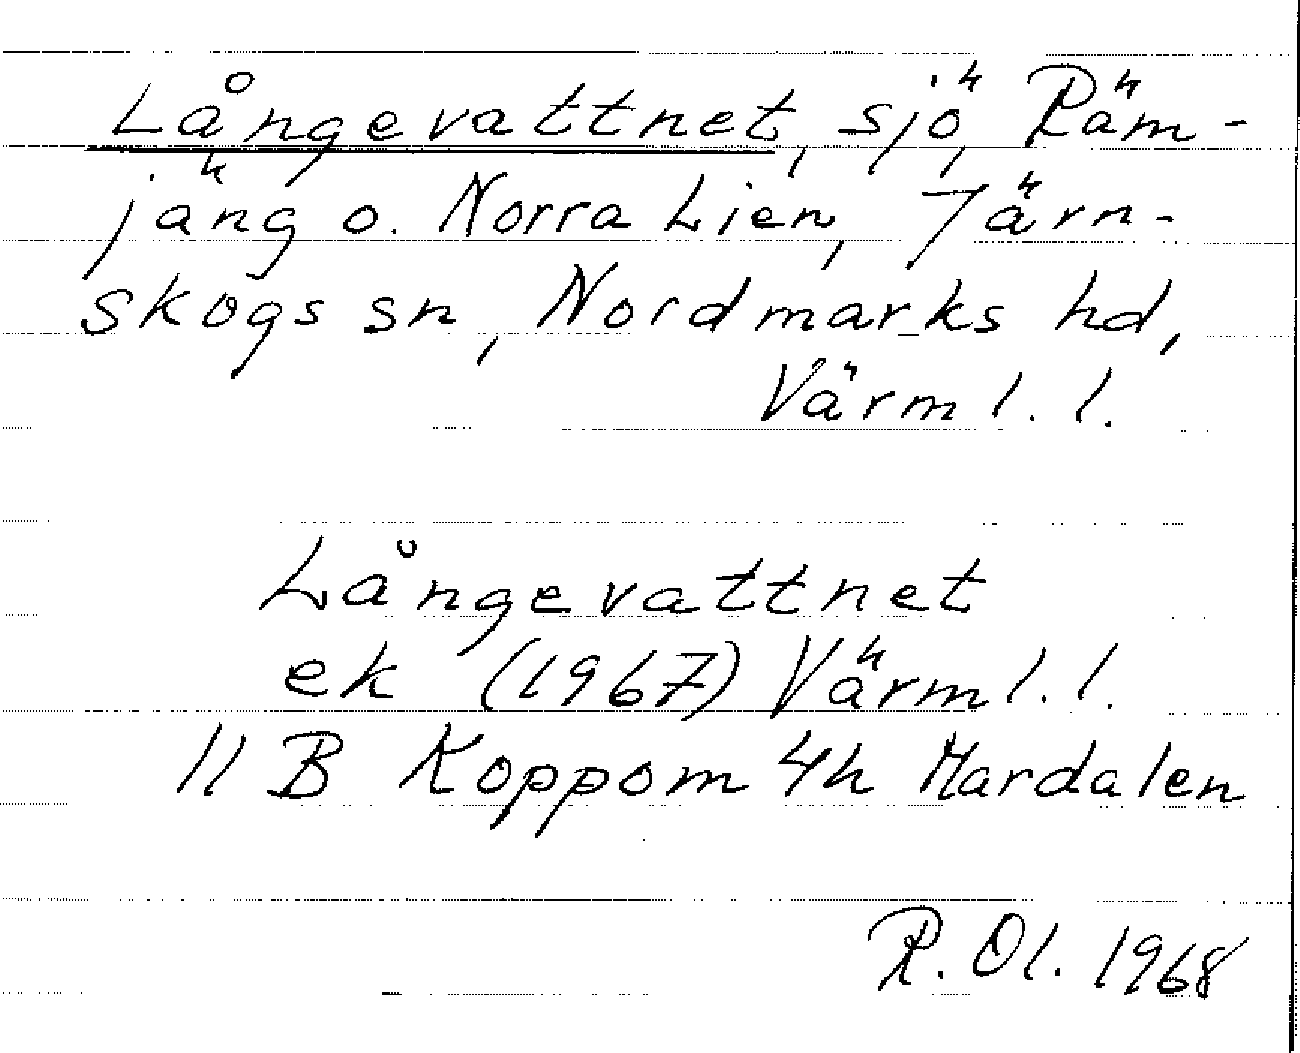 Långevattnet, sjö, Räm-
jäng o. Norra Lien, Järn-
skogs sn, Nordmarks hd,
Värml. l.
Långevattnet
ek (1967) Värml. l.
11 B Koppom 4h Mardalen
R. Ol. 1968